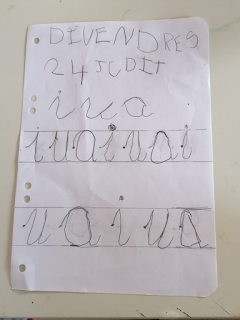 DIVENDRES
24 JULIT
i u a
i u a i u a i
u a i u a